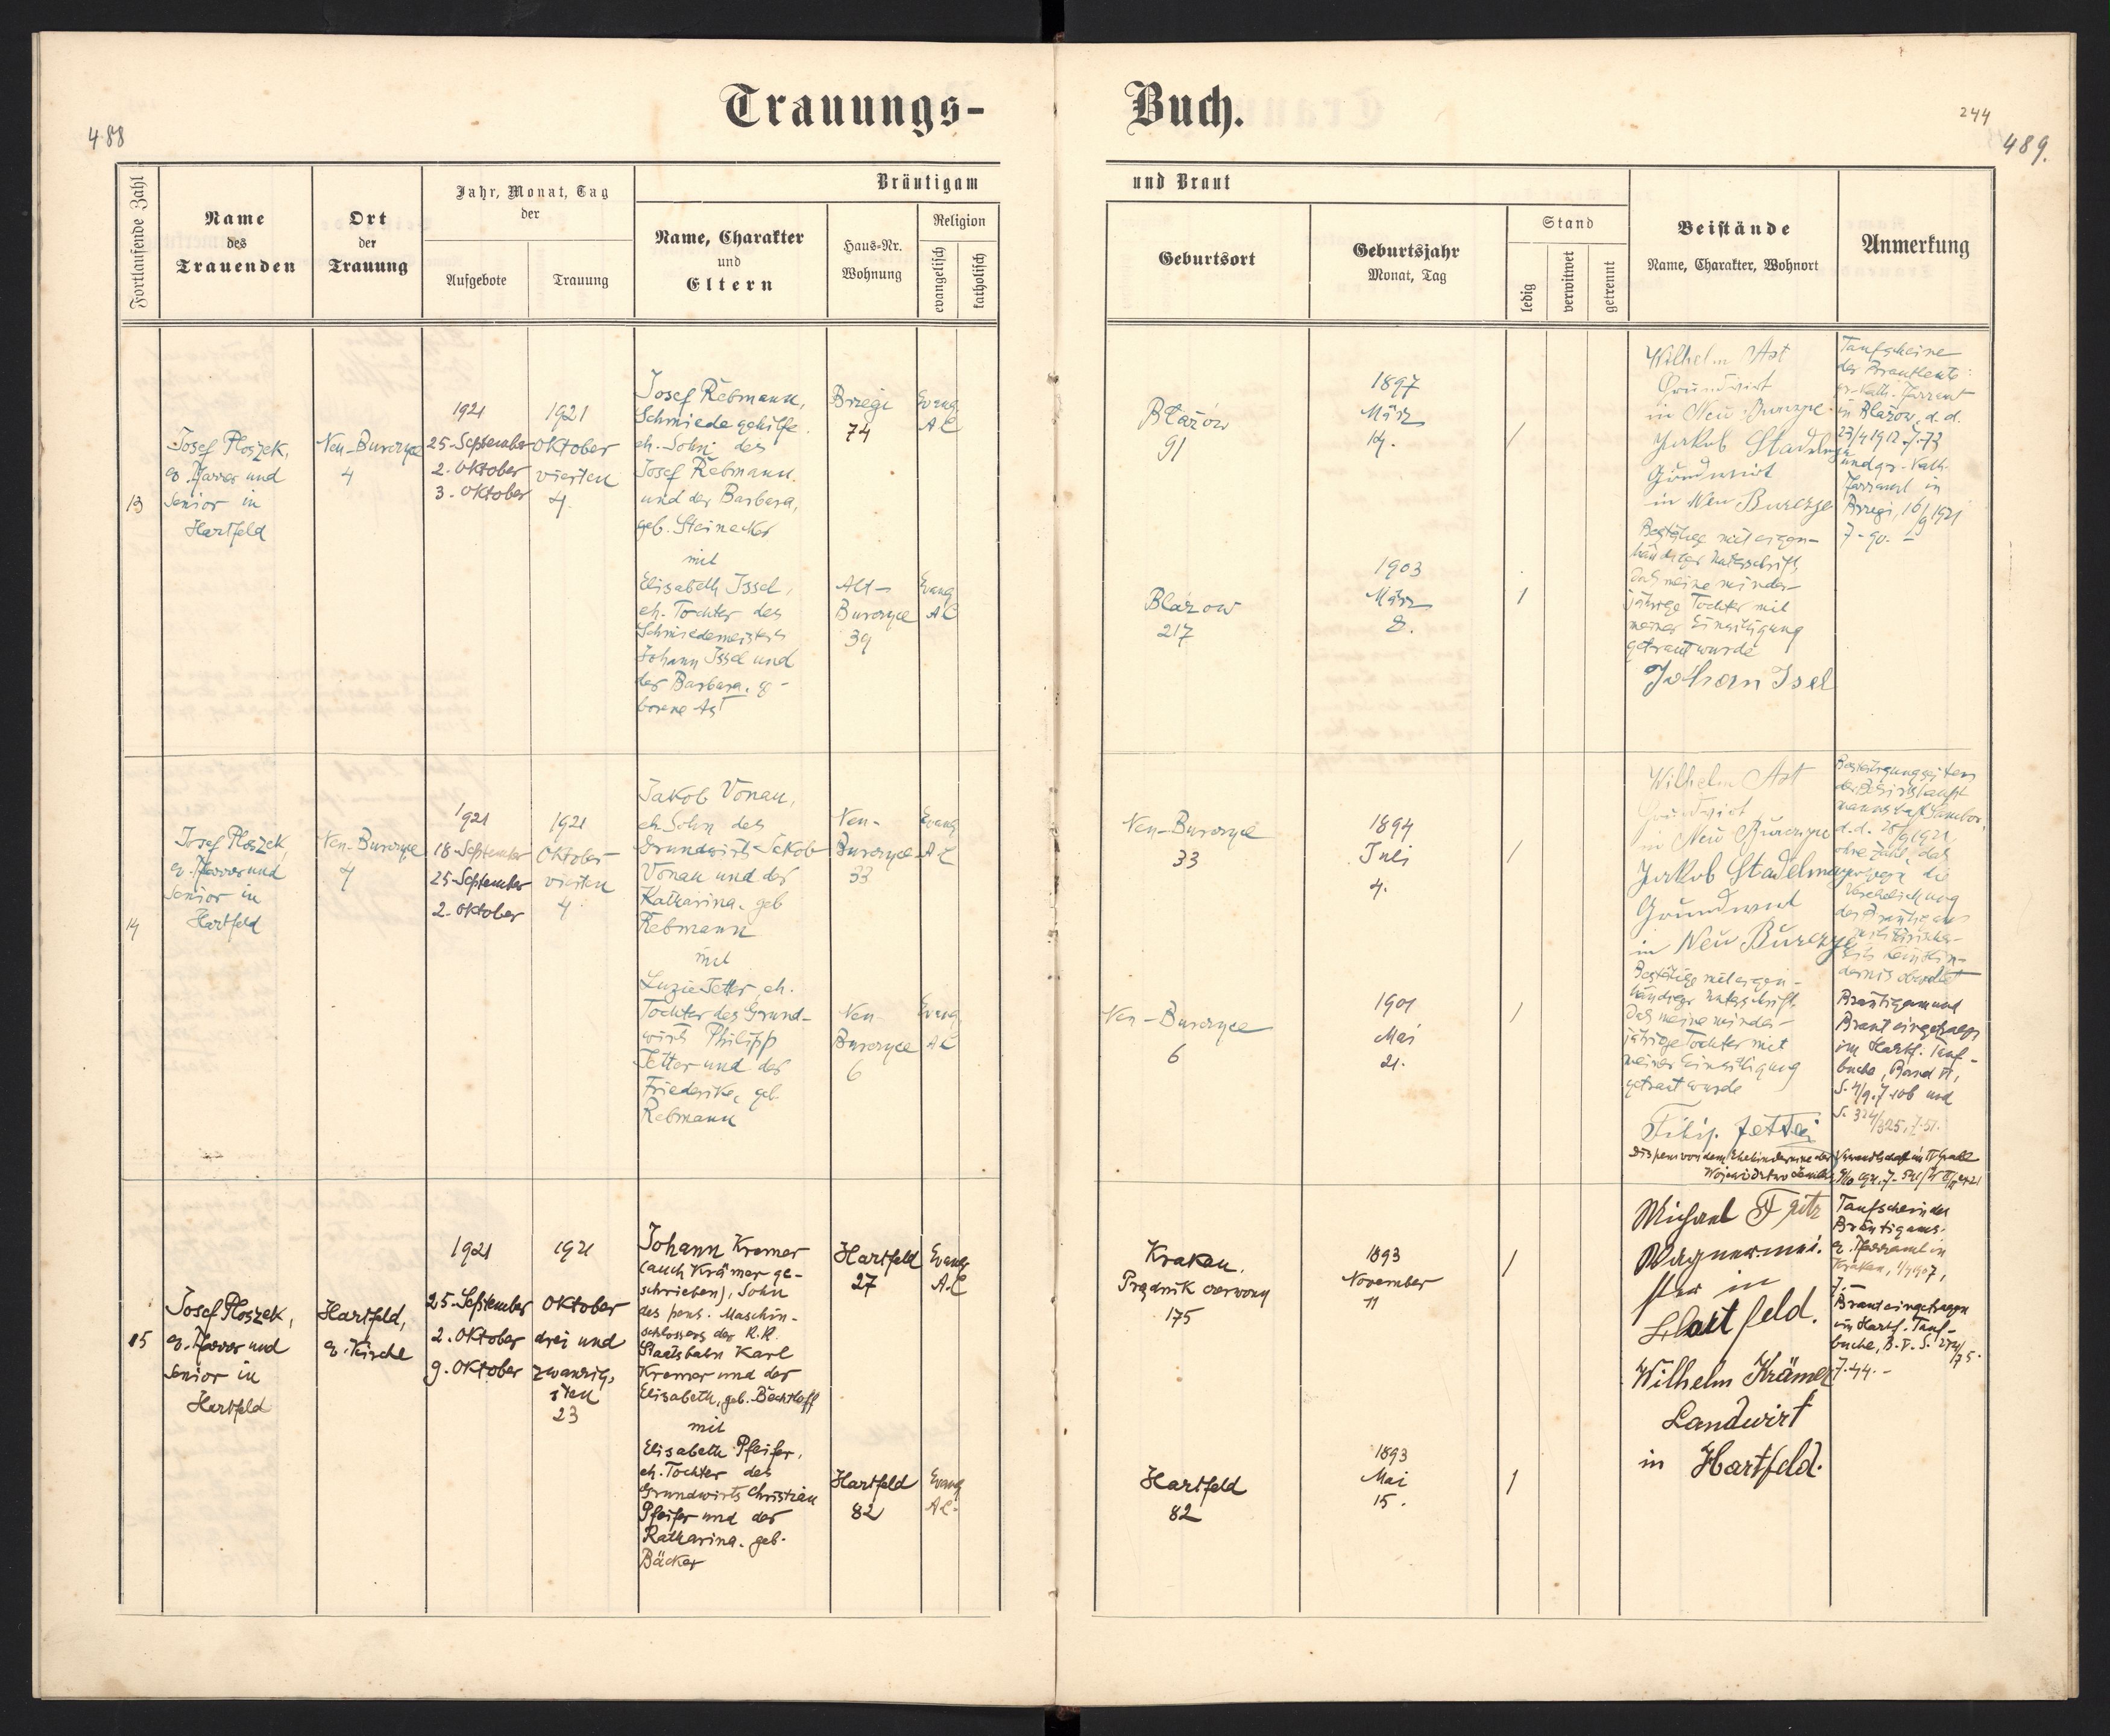 Trauungs-
Buch.
488
244
489.
Fortlaufende Zahl
Name
des
Trauenden
Ort
der
Trauung
Jahr, Monat, Tag
der
Aufgebote
Trauung
Bräutigam
Name, Charakter
und
Eltern
Haus-Nr.
Wohnung
Religion
evangelisch
katholisch
und Braut
Geburtsort
Geburtsjahr
Monat, Tag
Stand
ledig
verwitwet
getrennt
Beistände
Name, Charakter, Wohnort
Anmerkung
13
Josef Ploszek,
ev. Pfarrer und
Senior in
Hartfeld
Neu-Burczyce
4
1921
25. September
2. Oktober
3. Oktober
1921
Oktober
vierten
4.
Josef Rebmann,
Schmiedegehilfe
eh. Sohn des
Josef Rebmann
und der Barbara,
geb. Steinacker
mit
Elisabeth Issel,
eh. Tochter des
Schmiedemeisters
Johann Issel und
der Barbara, ge-
borene Ast
Brzegi
74
Evang
AC
Alt-
Burczyce
39
Evang
AC
Blażow
91
1897
März
14.
/
Blażow
217
1903
März
8.
/
Wilhelm Ast
Grundwirt
in Neu Burczyce
Jakob Stadelmayer
Grundwirt
in Neu Burczyce
Bestätige mit eigen-
händiger Unterschrift,
daß meine minder-
jährige Tochter mit
meiner Einwilligung
getraut wurde
Johan Isel
Taufscheine
der Brautleute:
gr.-kath. Pfarramt
in Blażow, d. d.
23/4 1912. 7-73
und gr.-kath.
Pfarramt in
Brzegi, 16/9 1921
7-90. -
14
Josef Ploszek,
ev. Pfarrer und
Senior in
Hartfeld
Neu-Burczyce
4
1921
18. September
25. September
2. Oktober
1921
Oktober
vierten
4.
Jakob Vonau,
eh. Sohn des
Grundwirts Jakob
Vonau und der
Katharina, geb
Rebmann
mit
Luzie Jetter, eh.
Tochter des Grund-
wirts Philipp
Jetter und der
Friederike, geb.
Rebmann
Neu-
Burczyce
33
Evang
AC
Neu
Burczyce
6
Evang
AC
Neu-Burczyce
33
1894
Juli
4.
/
Neu-Burczyce
6
1901
Mai
21.
/
Wilhelm Ast
Grundwirt
in Neu Burczyce
Jakob Stadelmayer
Grundwirt
in Neu Burczyce
Bestätige mit eigen-
händiger Unterschrift,
daß meine minder-
jährige Tochter mit
meiner Einwilligung
getraut wurde
Filip. Jetter
Bestätigung seitens
der Bezirkshaupt-
mannschaft Sambor,
d. d. 28/9 1921,
ohne Zahl, daß
gegen die
Verehelichung
des Bräutigams
militärischer-
seits kein Hin-
dernis obwaltet
Bräutigam und
Braut eingetragen
im Hartf. Tauf-
buche, Band VI,
S. 4/9. 7.106 und
S. 324/325, 7.51.
Dispens von dem Ehehindernisse der Verwandtschaft im II Grade
15
Josef Ploszek,
ev. Pfarrer und
Senior in
Hartfeld
Hartfeld,
ev. Kirche
1921
25. September
2. Oktober
9. Oktober
1921
Oktober
drei und
zwanzig-
sten
23
Johann Kremer
(auch Krämer ge-
schrieben), Sohn
des pens. Maschin-
schlossers der K.K.
Staatsbahn Karl
Kremer und der
Elisabeth, geb. Bechtloff
mit
Elisabeth Pfeifer,
eh. Tochter des
Grundwirts Christian
Pfeifer und der
Katharina, geb.
Bäcker
Hartfeld
27
Evang
A.C
Hartfeld
82
Evang
AC.
Krakau,
Prądnik czerwony
175
1893
November
11
/
Hartfeld
82
1893
Mai
15.
/
Michael Fritz
Wagnermei-
ster in
Hartfeld.
Wilhelm Krämer
Landwirt
in Hartfeld.
Taufschein des
Bräutigams:
ev. Pfarramt in
Krakau,
Braut eingetragen
im Hartf. Tauf-
buche, B. V. S. 274/75.
7.44. -